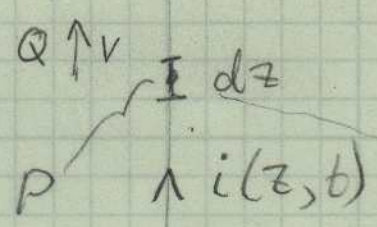 Q ↑ v
dz
p ∧ i(z,t)